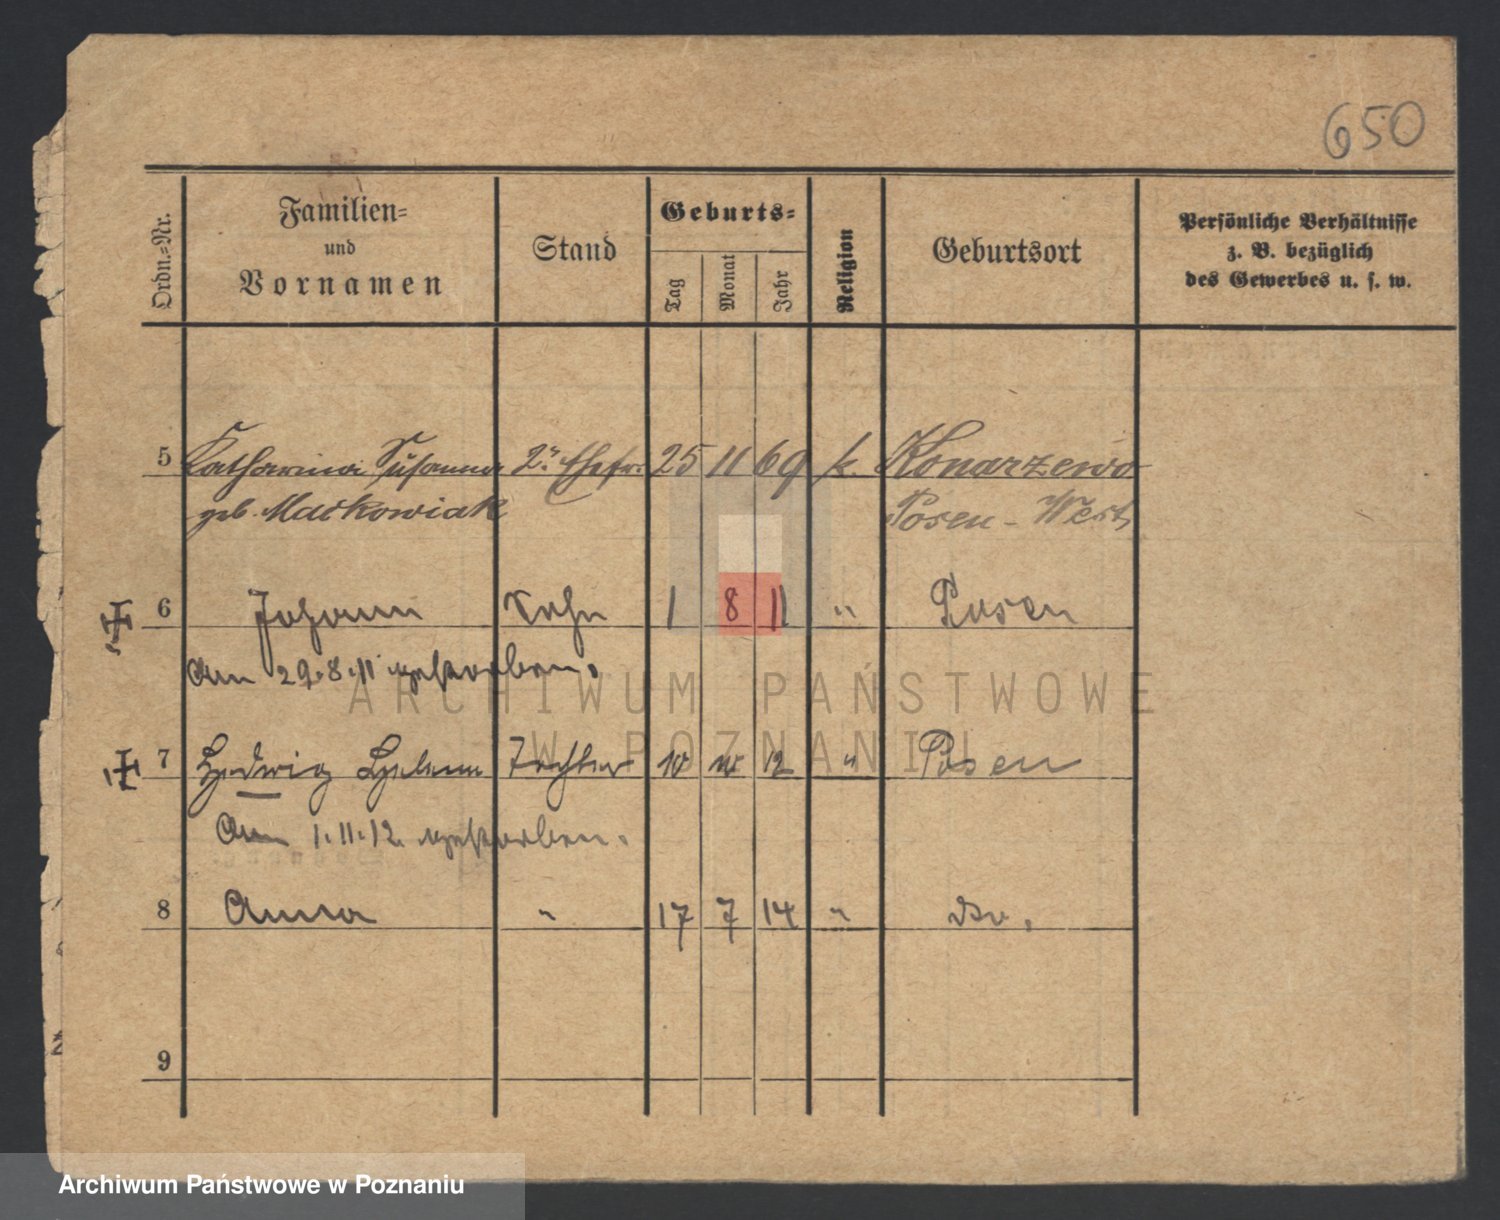 650
Ordn.=Nr.
Familien=
und
Vornamen
Stand
Geburts=
Tag
Monat
Jahr
Religion
Geburtsort
Persönliche Verhältnisse
z. B. bezüglich
des Gewerbes u. s. w.
5 Katharina Susanna 2te Ehefr. 25 11 69 k. Konarzewo
geb. Maćkowiak Posen - West
6 Johann Sohn 1 8 11 " Posen
Am 29.8.11 gestorben.
ARCHIWUM PAŃSTWOWE
W POZNANIU
7 Hedwig Helene Tochter 10 12 " Posen
Am 1.11.12. gestorben.
8 Anna " 17 7 14 " do.
9
Archiwum Państwowe w Poznaniu